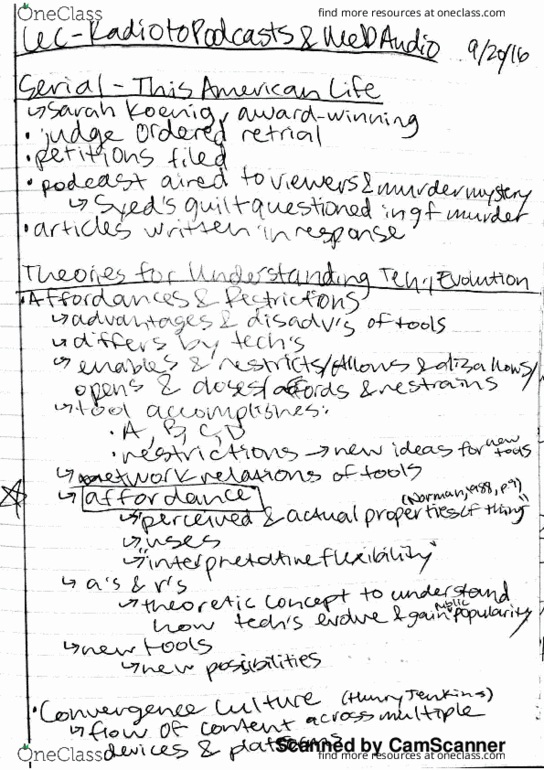 OneClass
find more resources at oneclass.com
Lec - Radio to Podcasts & Web Audio 9/20/16
Serial - This American Life
↳ Sarah Koenig, award-winning
• judge ordered retrial
• petitions filed
• podcast aired to viewers & murder mystery
↳ Syed's guilt questioned in gf murder
• articles written in response
Theories for Understanding Tech, Evolution
• Affordances & Restrictions
↳ advantages & disadv's of tools
↳ differs by tech's
↳ enables & restricts/Allows & disallows/
opens & closes/affords & restrains
↳ tool accomplishes:
• A, B, C, D
• restrictions → new ideas for new tools
↳ network relations of tools
☆ ↳ affordance (Norman, 1988, p 9)
↳ "perceived & actual properties of thing"
↳ uses
↳ "interpretative flexibility"
↳ a's & r's
↳ theoretic concept to understand
how tech's evolve & gain public popularity
↳ new tools
↳ new possibilities
• Convergence Culture (Henry Jenkins)
↳ flow of content across multiple
devices & platforms
Scanned by CamScanner
OneClass
find more resources at oneclass.com